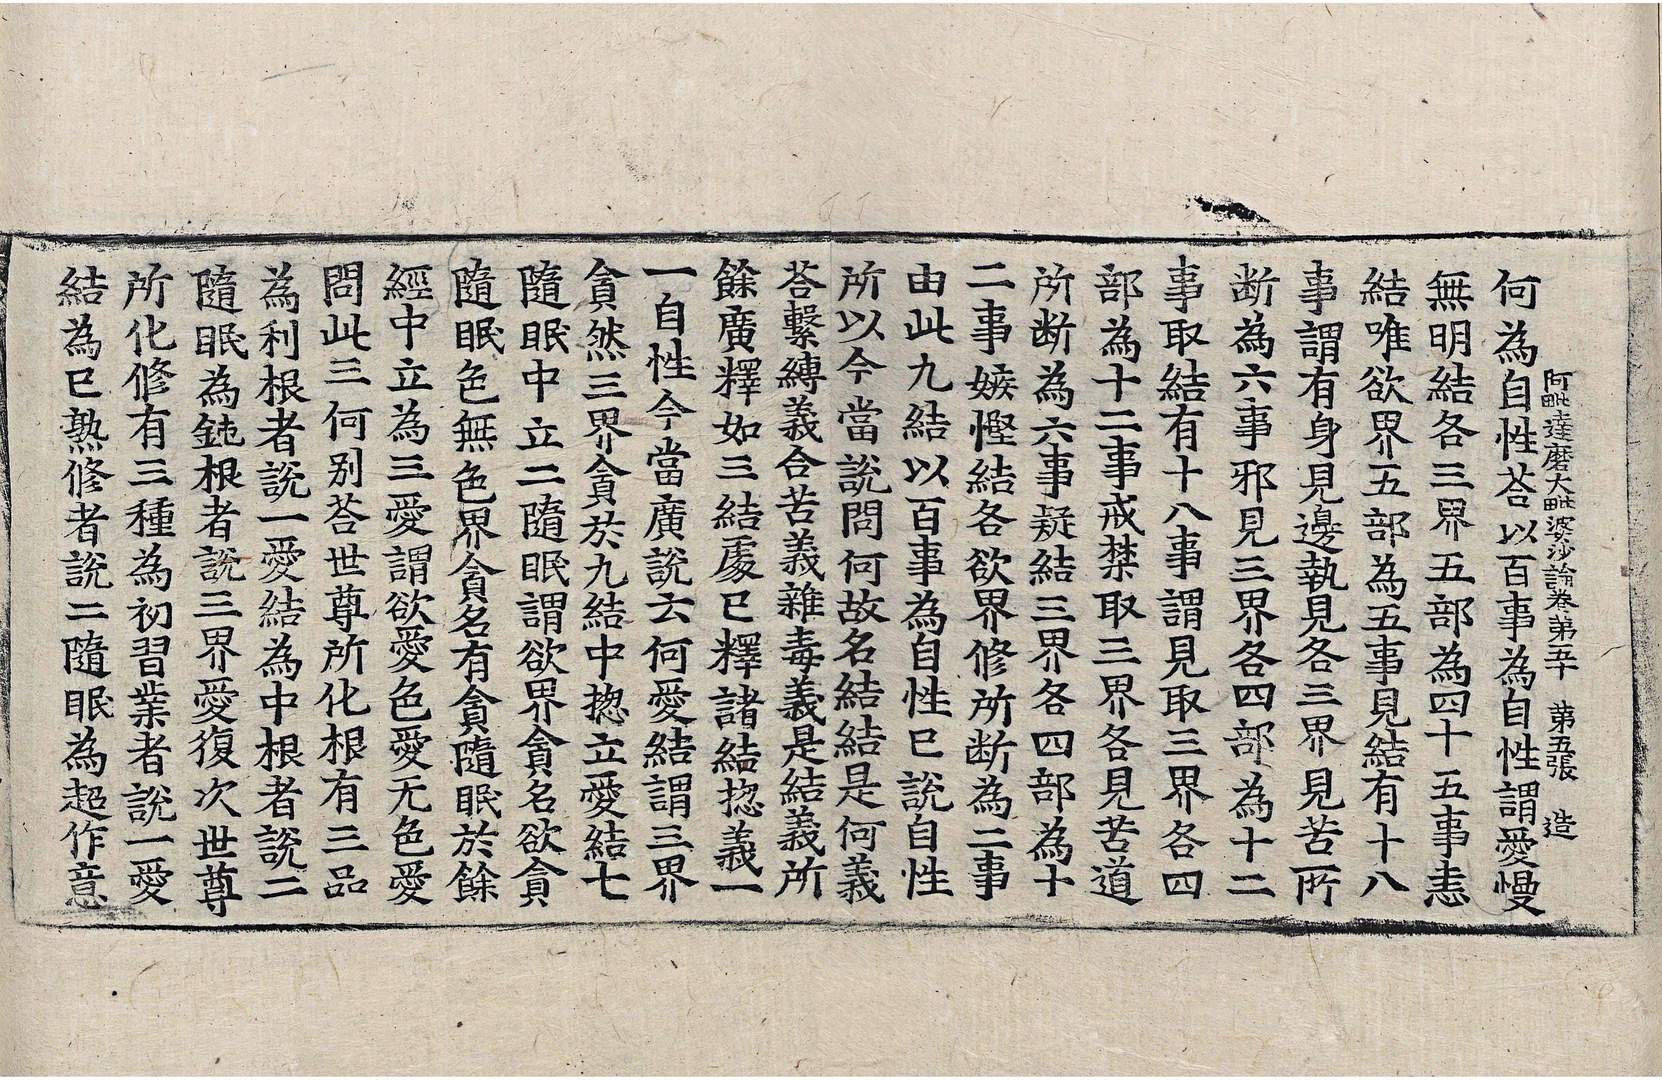 阿毗達磨大毗婆沙論卷第五十　第五張　造
何為自性荅以百事為自性謂愛慢
無明結各三界五部為四十五事恚
結唯欲界五部為五事見結有十八
事謂有身見邊執見各三界見苦所
断為六事邪見三界各四部為十二
事取結有十八事謂見取三界各四
部為十二事戒禁取三界各見苦道
所断為六事疑結三界各四部為十
二事嫉慳結各欲界修所断為二事
由此九結以百事為自性已說自性
所以今當說問何故名結結是何義
荅繫縛義合苦義雜毒義是結義所
餘廣釋如三結處已釋諸結揔義一
一自性今當廣說云何愛結謂三界
貪然三界貪於九結中揔立愛結七
隨眠中立二隨眠謂欲界貪名欲貪
隨眠色無色界貪名有貪隨眠於餘
經中立為三愛謂欲愛色愛无色愛
問此三何別荅世尊所化根有三品
為利根者說一愛結為中根者說二
隨眠為鈍根者說三界愛復次世尊
所化修有三種為初習業者說一愛
結為已熟修者說二隨眠為超作意